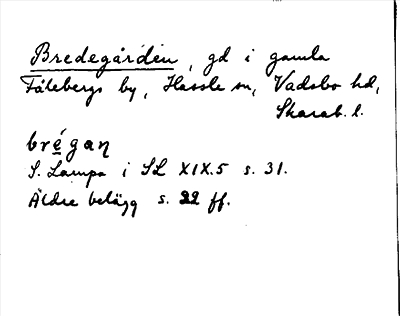 Bredegården, gd i gamla
Fålebergs by, Hassle sn, Vadsbo hd,
Skarab. l.
brégaɳ
S. Lampa i SL XIX.5 s. 31.
Äldre belägg s. 22 ff.